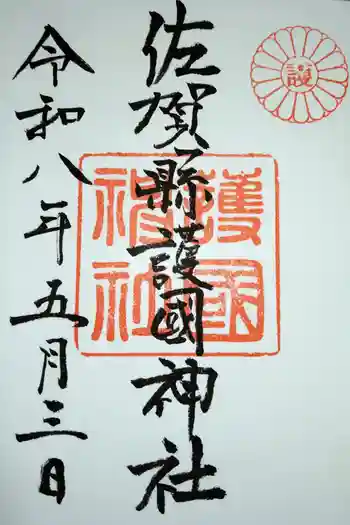 護
佐賀縣護國神社
護國
神社
令和八年五月三日